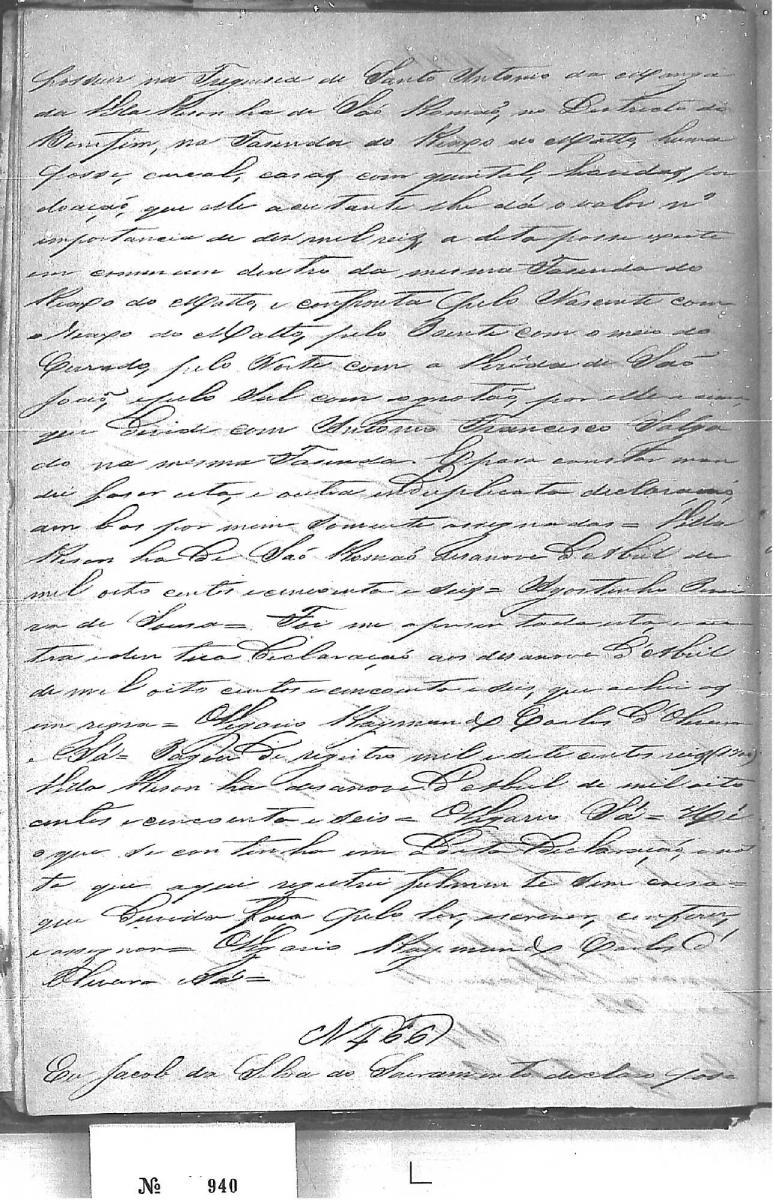 possuir na Freguesia de Santo Antonio da Manga
da Villa Rison ha de São Romaõ, no Destricto do
Bomfim, na Fasenda do Rexpo do Matto, huma
posse, curral, casas, com quintal, havidas por
doaçaõ, que elle a citante lhe dá o valor nº
importancia de des mil reis, a dita posse existe
em commum dentro da mesma Fasenda do
do Matto, e confronta pelo Nascente com
o do Matto, pelo Poente com o meio do
Cerrado, pelo Norte com a Virida de Saõ
Joaõ, e pelo Sul com o grotaõ, por elle a cima,
que devide com Antonio Francisco Salga
do na mesma Fasenda. E para constar man
dei faser esta, e outra em Dupplicata declaraçaõ,
am bas por mim somente assegnadas = Villa
Rison ha de Saõ Romaõ desanove d'Abril de
mil oito centos e cincoenta e seis = Agostinho Perei
ra de Sousa = Foi me apresentada esta e ou
tra iden tica Declaraçaõ aos desanove d'Abril
de mil oito centos e cincoenta e seis, que achei as
em regra = Vigario Raymundo Carlos d'Oliveira
e Sá = Pagou de registro mil e sete centos reis (1700)
Villa Rison ha desanove d'Abril de mil oito
centos e cincoenta e seis = Vigario Sá = Hé
o que se continha em Dita Declaraçaõ, e no
ta que aqui registrei fielmen te sem cousa =
que duvida faça pelo ler, escrever, conferir,
e assignar = Vigario Raymundo Carlos d'
Oliveira e Sá =
N 466
Eu Jacob da Silva do Sacramento declaro pos
Nº 940